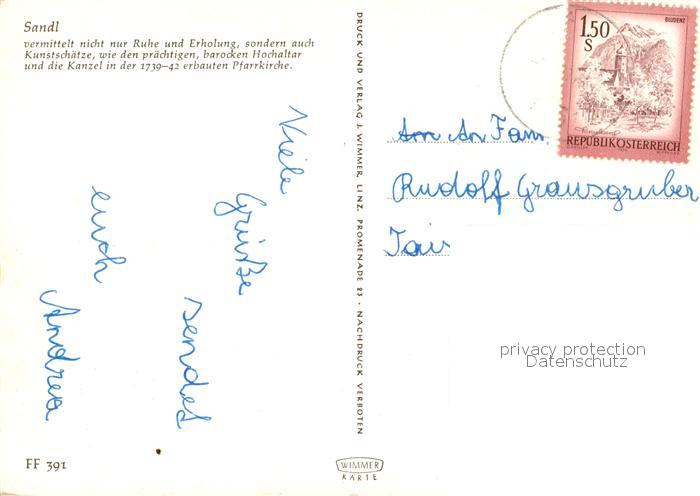 Sandl
vermittelt nicht nur Ruhe und Erholung, sondern auch
Kunstschätze, wie den prächtigen, barocken Hochaltar
und die Kanzel in der 1739–42 erbauten Pfarrkirche.
Viele
Grüße
sendet
euch
Andrea
FF 391
DRUCK UND VERLAG J. WIMMER, LINZ, PROMENADE 23 · NACHDRUCK VERBOTEN
WIMMER
KARTE
BLUDENZ
1.50
S
REPUBLIK ÖSTERREICH
An Fam.
Rudolf Grausgruber
privacy protection
Datenschutz